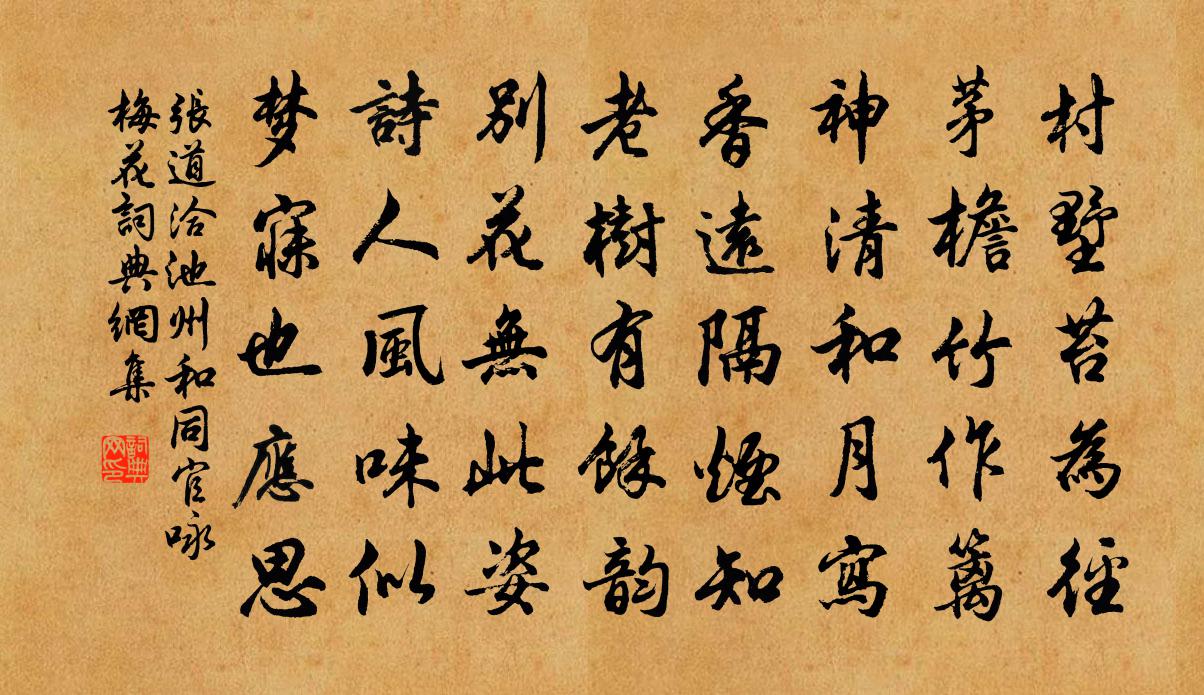 村墅苔為徑
茅檐竹作籬
神清和月寫
香遠隔煙知
老樹有餘韵
別花無此姿
詩人風味似
梦寐也應思
張道洽池州和同官咏
梅花詞典網集
詞典网印